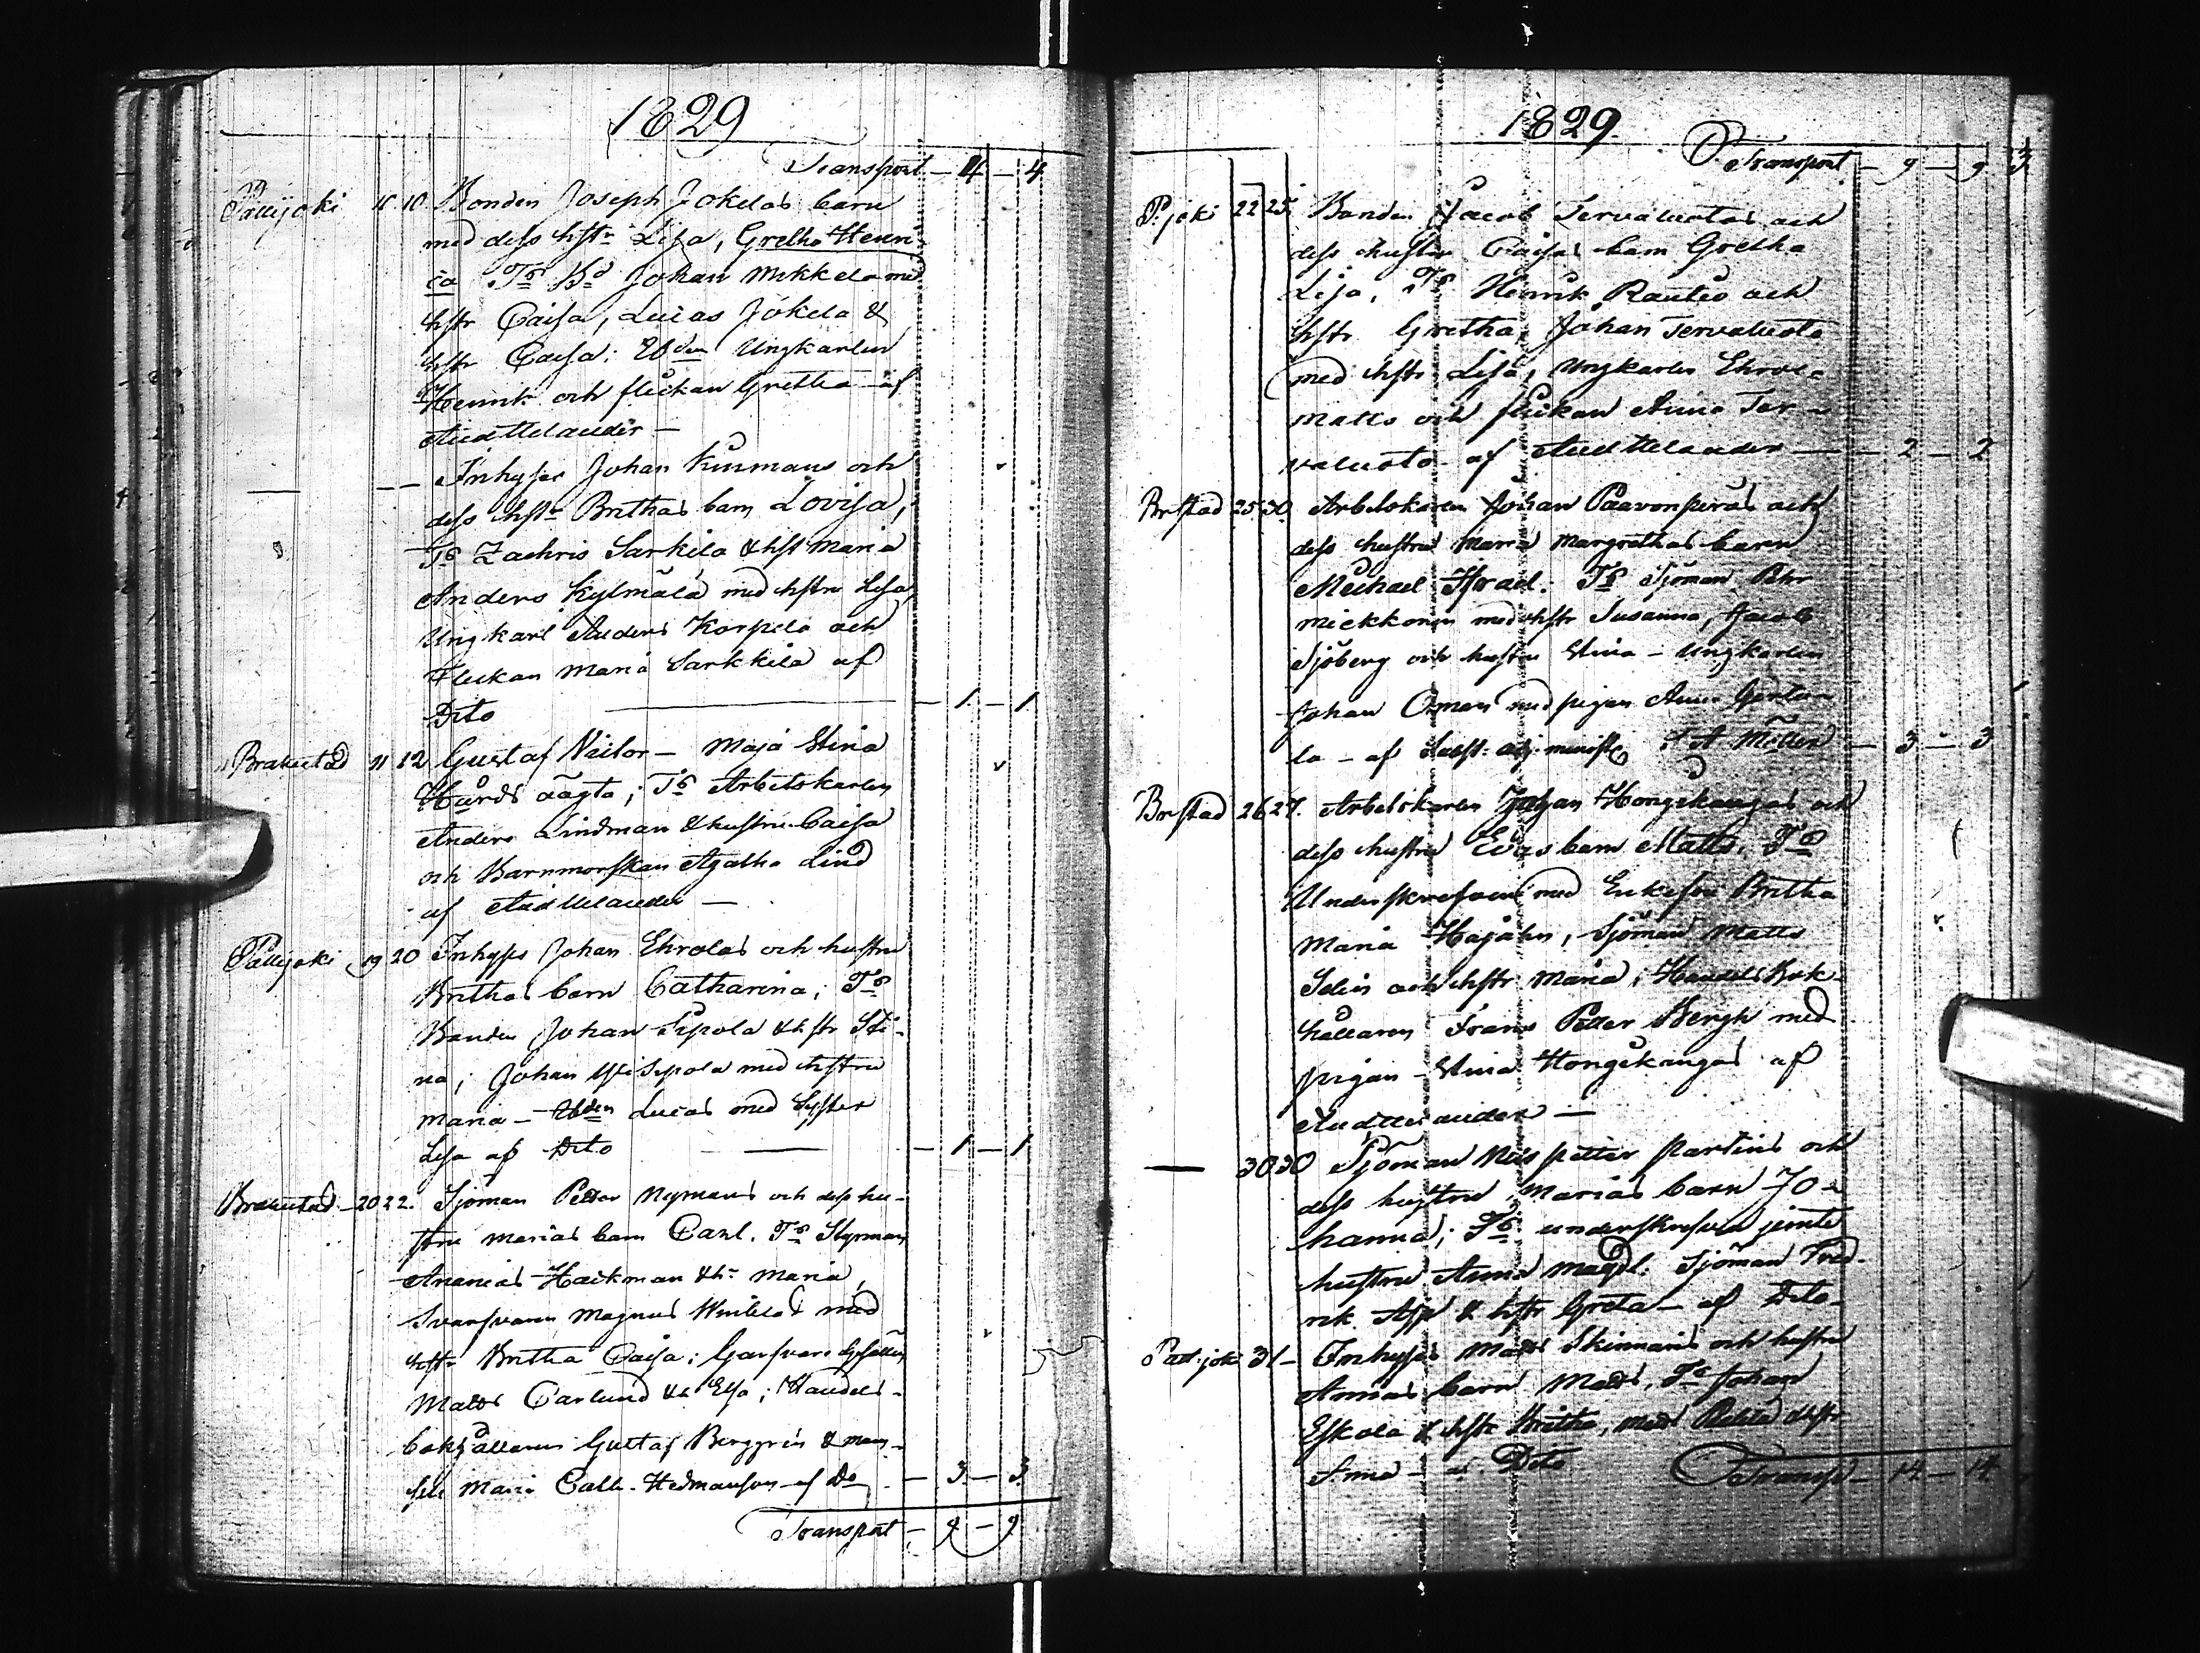 1829
Transport - 4 - 4
Pattijoki 11. 10. Bonden Joseph Jokelas barn
med dess hstr Lisa, Gretha Henri-
ca Ts Bd Johan Mikkela med
hstr Caisa, Lucas Jokela &
hstr Caisa; Ungkarlen
Henrik och flickan Gretha af
And Helander -
— -- Inhyses Johan Kinmans och
dess hstr Brithas barn Lovisa,
Ts Zachris Sarkila & hst Maria
Anders Kylmälä med hstru Lisa
Ungkarl Anders Korpela och
Flickan Maria Sarkkila af
Dito - 1 - 1
Brahestad 11 12 Gustaf Victor - Maja Stina
Hårds oägta; Ts Arbetskarlen
Anders Lindman & hustru Caisa
och Barnmorskan Agatha Lind
af And Helander -
Pattijoki 19 20 Inhyses Johan Ehrolas och hustru
Brithas barn Catharina; Ts
Bonden Johan Sipola & hstr Sti-
na; Johan Sipola med hstru
Maria - Lucas med Syster
Lisa af Dito - 1 - 1
Brahestad - 20 22. Sjöman Petter Nymans och dess hu-
stru Marias barn Carl. Ts Styrman
Ananias Hackman & h: Maria,
Svarfvaren Magnus Winblad med
hstr Britha Caisa; Garfvare Gesällen
Matts Carlund & h Elsa; Handels-
bokhållaren Gustaf Berggrén & mam-
sell Maria Cath. Hedmanson af Do - 3 - 3
Transport - 9 - 9
1829.
Transport - 9 - 9
P.joki 22 25. Bonden Jacob Tervaluotos och
dess hustru Caisas barn Gretha
Lisa, Ts Henrik Rautio och
hstr Gretha, Johan Tervaluoto
med hstr Lisa, Ungkarlen
Matts och flickan Anna Ter-
valuoto af And Helander - 2 - 2
Brstad 25 30. Arbetskarlen Johan Paavonperäs och
dess hustru Maria Margrethas barn
Michael Israel. Ts Sjöman Pehr
Mickkonen med hstr Susanna, Jacob
Sjöberg och hustru Stina - Ungkarlen
Johan Öman med pigan Anna
la - af F A Möller - 3 - 3
Brstad 26 27. Arbetskarlen Johan Hongekangas och
dess hustru Evas barn Matts. Ts
Underskrefven med Enkefru Britha
Maria Hajahn, Sjöman Matts
och hstr Maria; Handels Bok-
hållaren Frans Petter Bergh med
pigan Stina Hongekangas af
And Helander —
— 30 30 Sjöman Nils Petter Partins och
dess hustru Marias barn Jo-
hanna; Ts underskrefven jemte
hustru Anna Magdl. Sjöman Fred-
rik Asp & hstr Greta - af Dito -
Patt:joki 31 - Inhyses Matts Skinnaris och hustru
Annas barn Matts, Ts Johan
Eskola & hstr Britha, Matts &hstr
Anna - af Dito Transp - 14 - 14